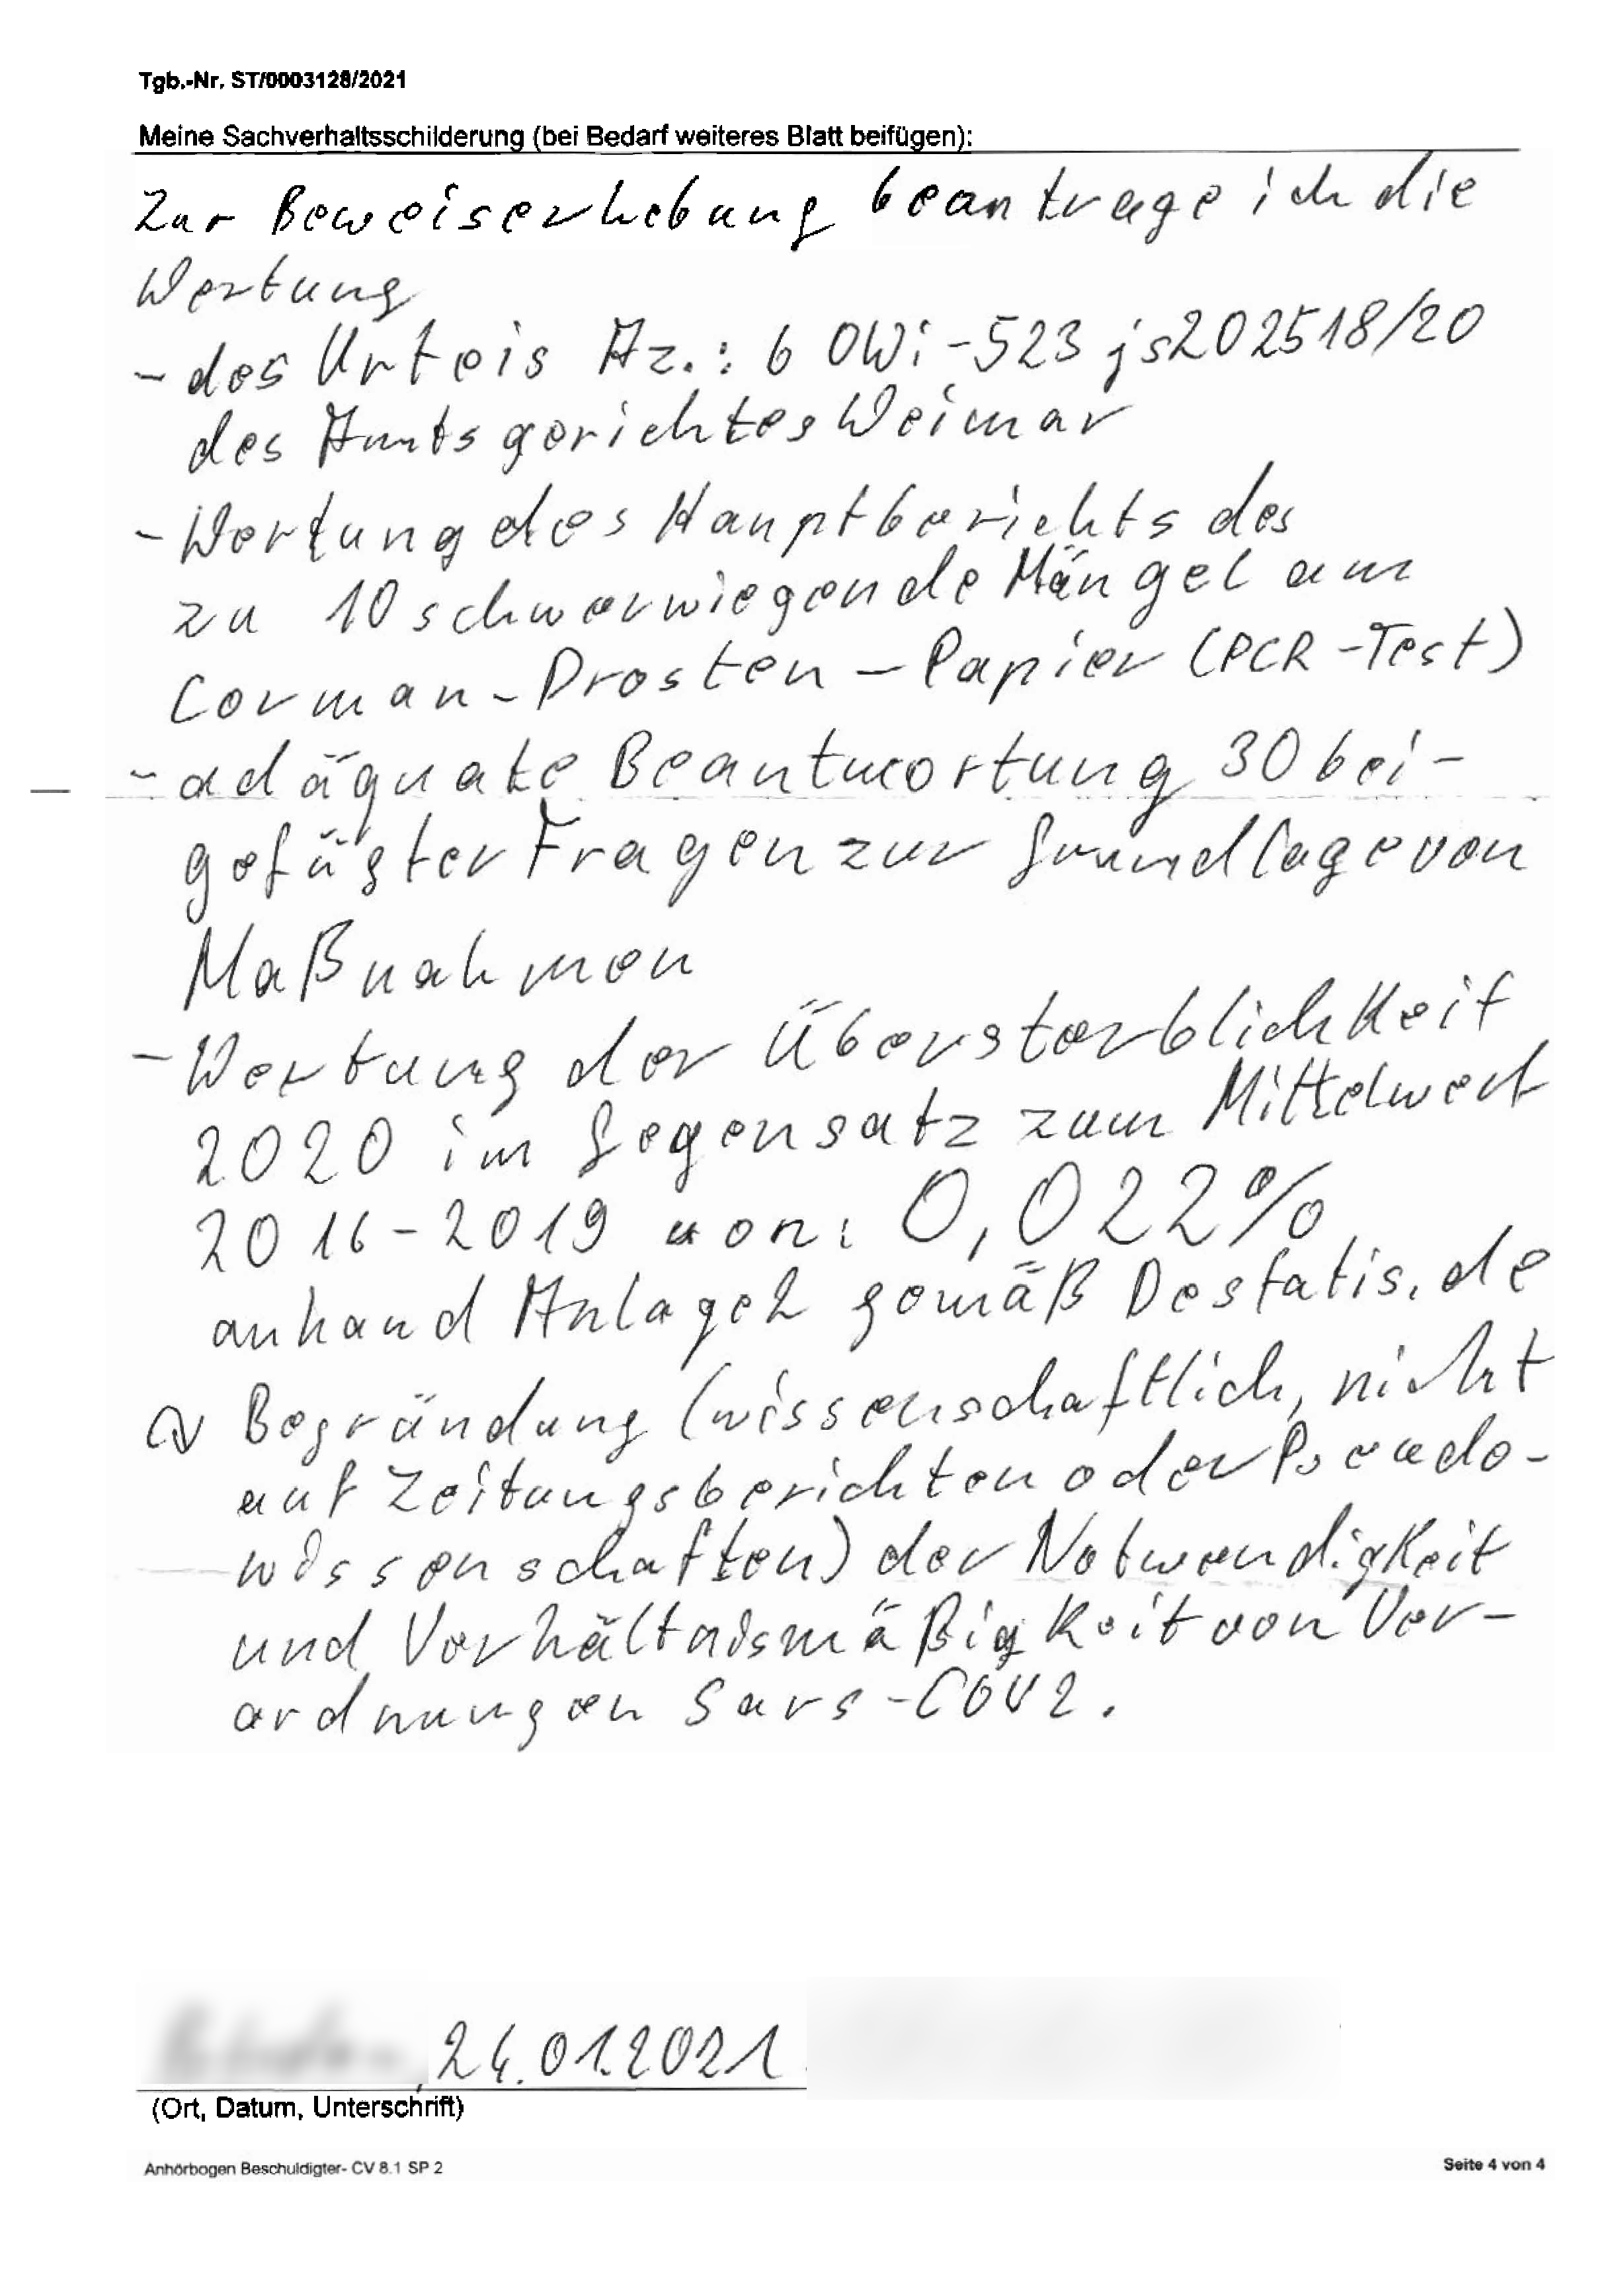 Tgb.-Nr. ST/0003128/2021
Meine Sachverhaltsschilderung (bei Bedarf weiteres Blatt beifügen):
Zur Beweiserhebung beantrage ich die
Wertung
- des Urteis Az.: 6 OWi-523 js202518/20
des Amtsgerichtes Weimar
- Wertung des Hauptberichts des
zu 10 schwerwiegende Mängel am
Corman-Drosten-Papier (PCR-Test)
- adäquate Beantwortung 30 bei-
gefügter Fragen zur Grundlage von
Maßnahmen
- Wertung der Übersterblichkeit
2020 im Gegensatz zum Mittelwert
2016-2019 von: 0,022%
anhand Anlage 2 gemäß Destatis.de
Begründung (wissenschaftlich, nicht
auf Zeitungsberichten oder Pseudo-
wissenschaften) der Notwendigkeit
und Verhältnismäßigkeit von Ver-
ordnungen Sars-COV2.
, 24.01.2021
(Ort, Datum, Unterschrift)
Anhörbogen Beschuldigter- CV 8.1 SP 2
Seite 4 von 4